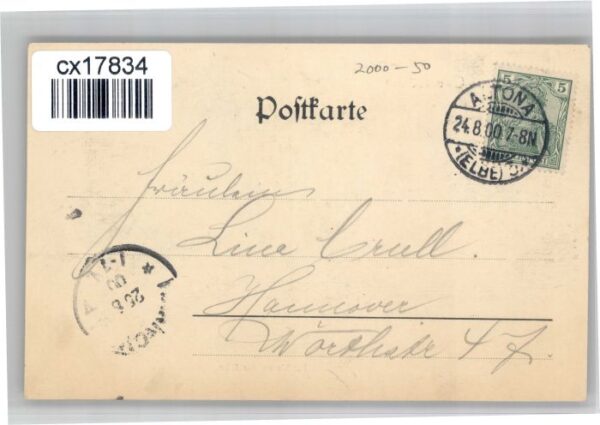 cx17834
2000-50
5 5
Postkarte
ALTONA
24.8.00.7-8N.
(ELBE)
Fräulein
Line Crull.
Hannover
Wörthstr 47.
25.8
00